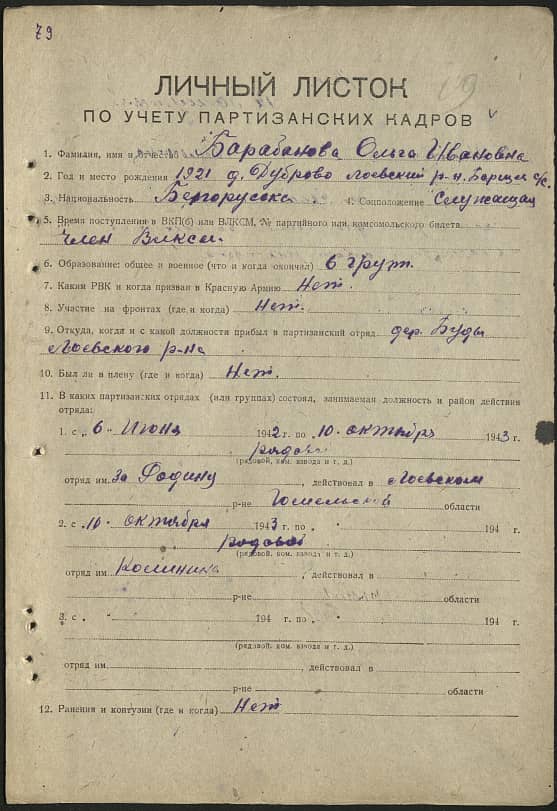 79
ЛИЧНЫЙ ЛИСТОК
ПО УЧЕТУ ПАРТИЗАНСКИХ КАДРОВ
1. Фамилия, имя и Барабанова Ольга Ивановна
2. Год и место рождения 1921 д. Дуброво Лоевский р-н. Борщев с/с.
3. Национальность Белоруска 4. Соцположение Служащая
5. Время поступления в ВКП(б) или ВЛКСМ, № партийного или комсомольского билета
Член Влксм.
6. Образование: общее и военное (что и когда окончил) 6 групп.
7. Каким РВК и когда призван в Красную Армию Нет.
8. Участие на фронтах (где и когда) Нет.
9. Откуда, когда и с какой должности прибыл в партизанский отряд дер. Буды
Лоевского р-на
10. Был ли в плену (где и когда) Нет.
11. В каких партизанских отрядах (или группах) состоял, занимаемая должность и район действия
отряда:
1. с „ 6 " Июня 1942 г. по 10 октября 1943 г.
рядовой
(рядовой, ком. взвода и т. д.)
отряд им. За Родину, действовал в Лоевском
р-не Гомельской области
2. с „10" октября 1943 г. по „ " 194 г.
рядовой
(рядовой, ком. взвода и т. д.)
отряд им. Калинина, действовал в
р-не области
3. с „ " 194 г. по „ " 194 г.
(рядовой, ком. взвода и т. д.)
отряд им. , действовал в
р-не области
12. Ранения и контузии (где и когда) Нет